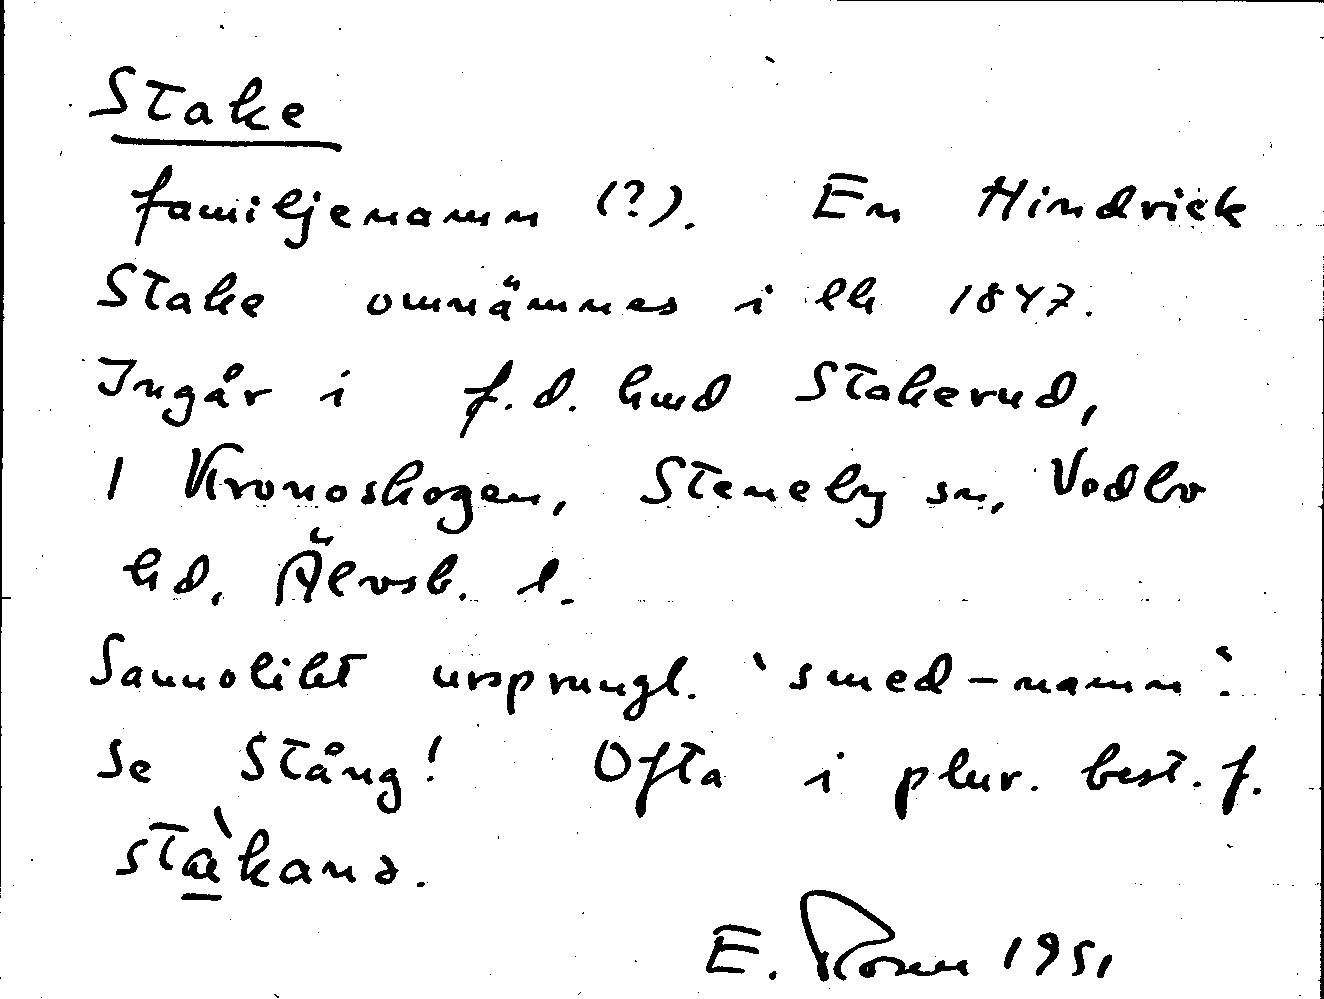 Stake
familjenamn (?). En Hindrick
Stake omnämnes i lk 1847.
Ingår i f.d. hmd Stakerud,
1 Kronoskogen, Steneby sn, Vedbo
hd, Älvsb. l.
Sannolikt ursprungl. `smed-namn`.
Se Stång! Ofta i plur. best. f.
E. 1951